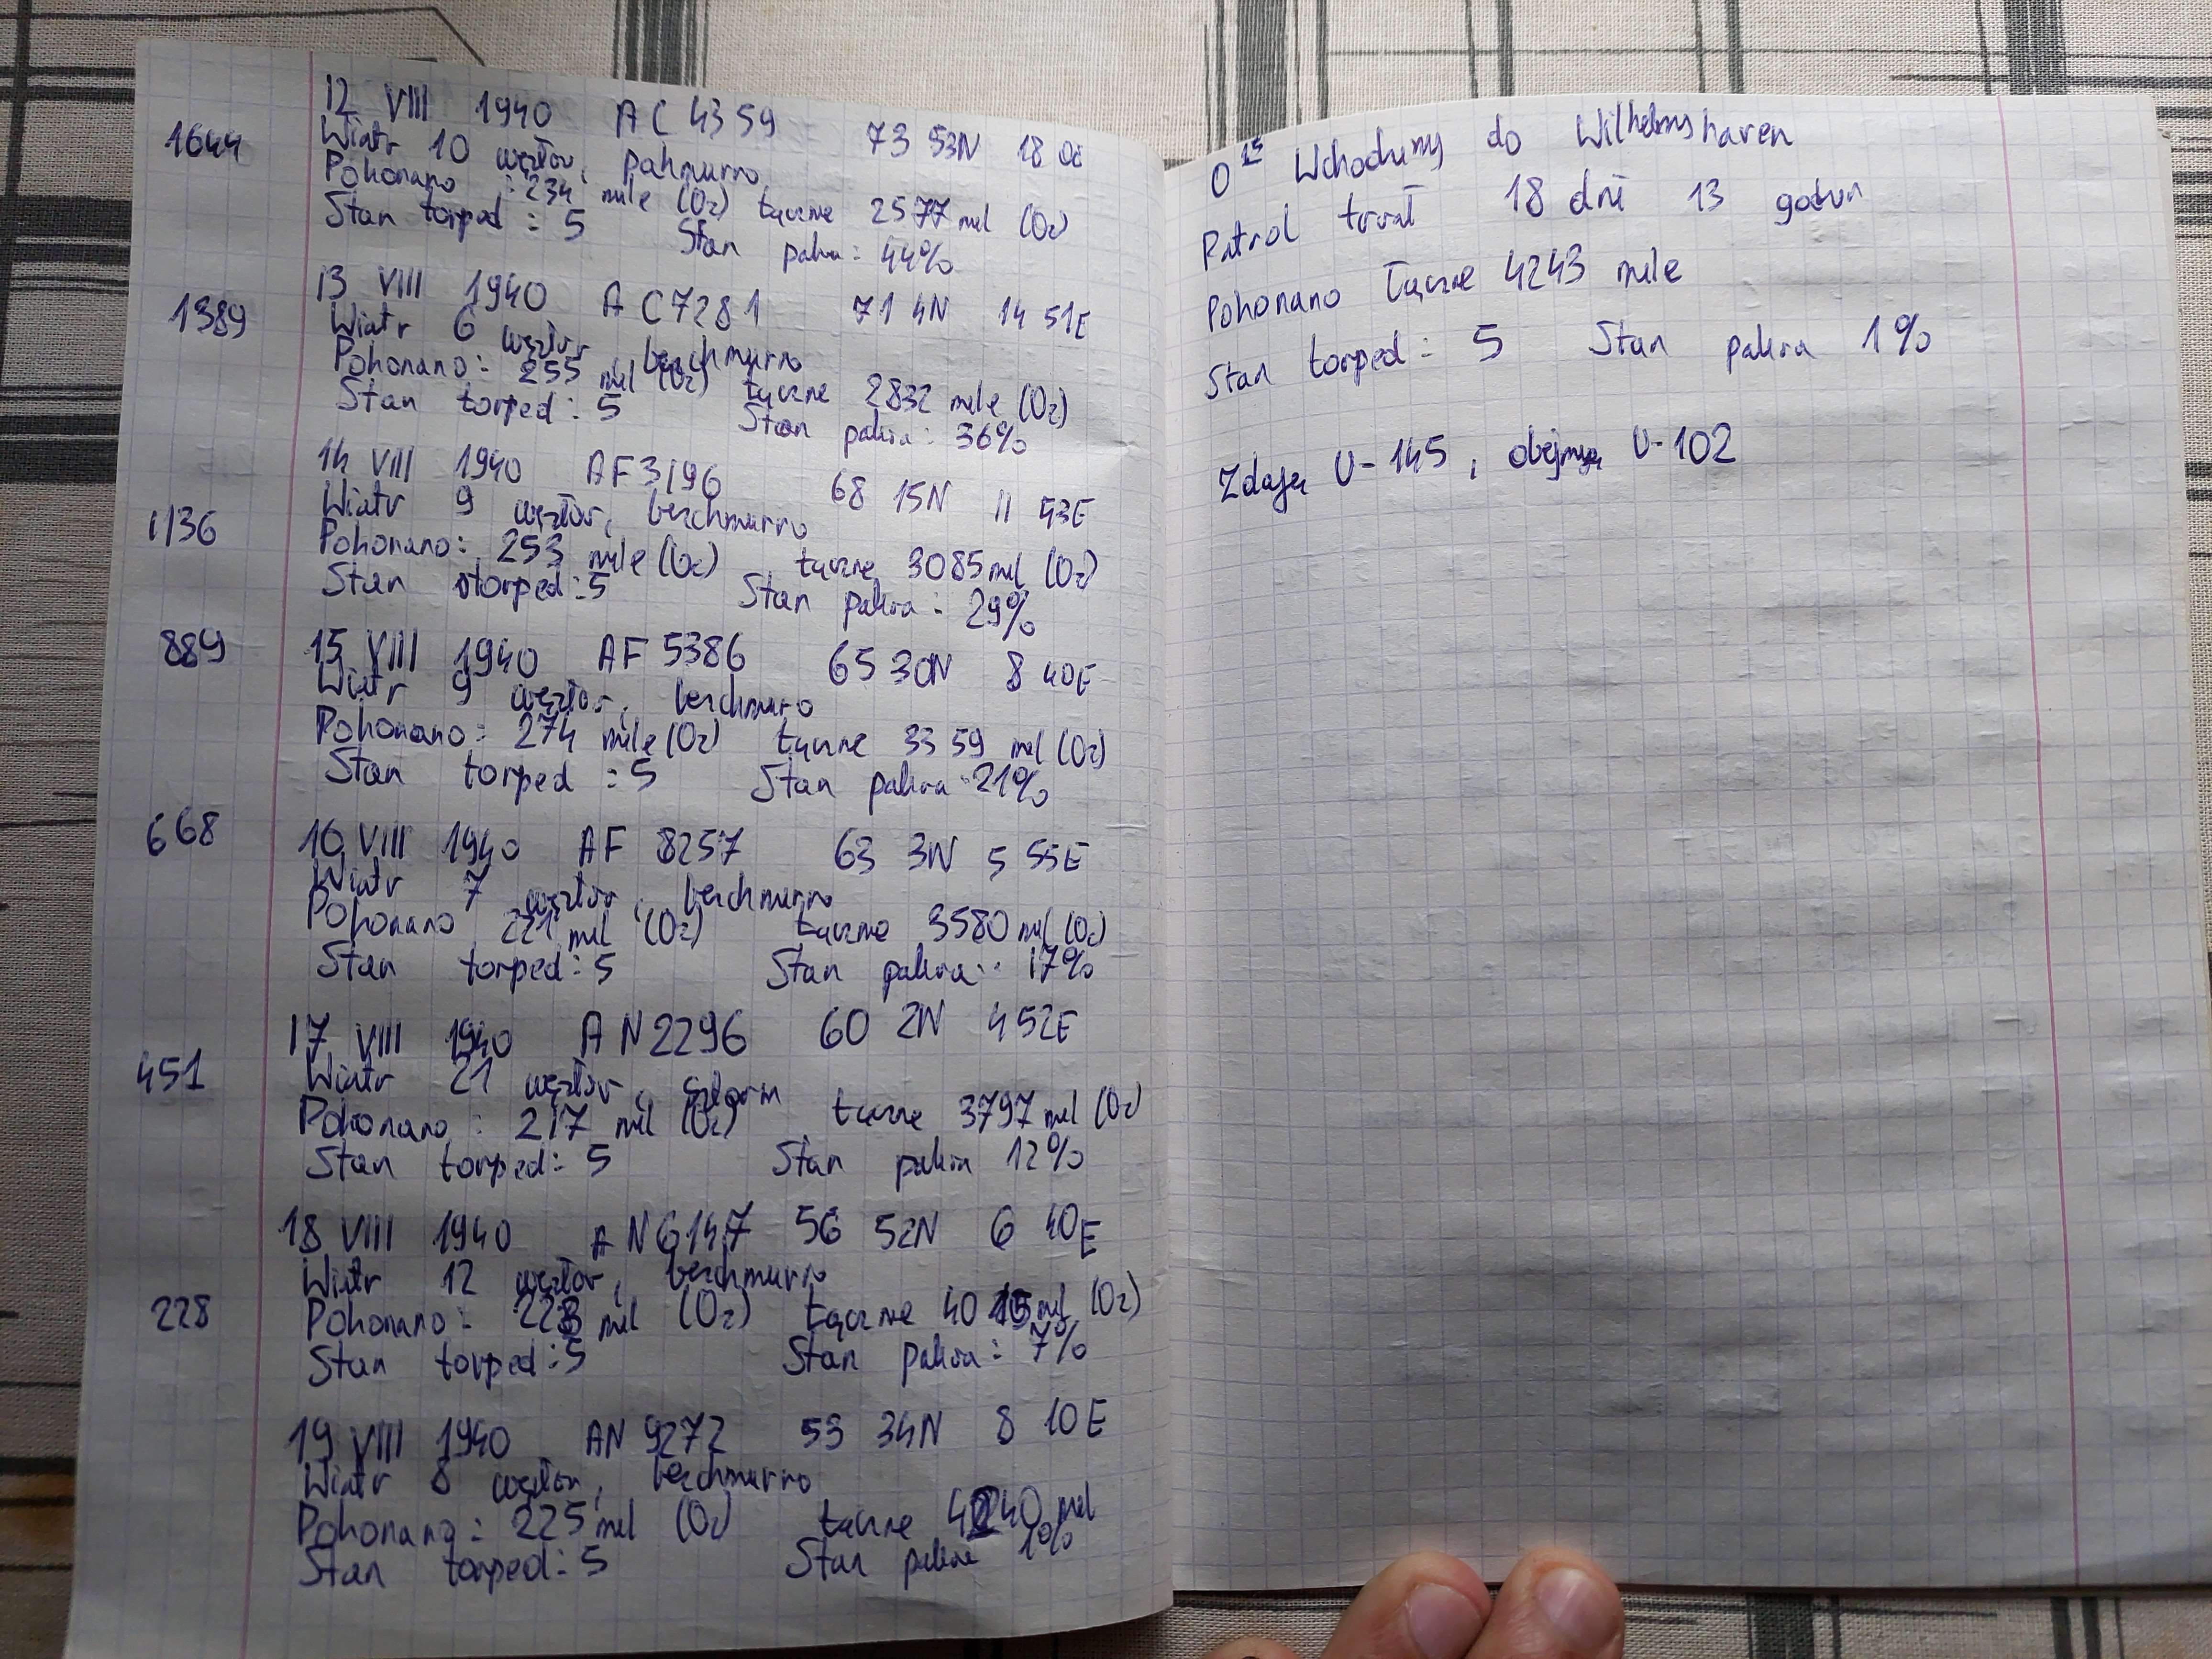 12 VIII 1940 AC 4359 73 53N 18 0E
1644
Wiatr 10 węzłów, pahmurno
Pokonano: 234 mile (O2) łącznie 2577 mil (O2)
Stan torped: 5 Stan paliwa: 44%
13 VIII 1940 AC7281 71 4N 14 51E
1389
Wiatr 6 węzłów, bezchmurno
Pokonano: 255 mil (O2) łącznie 2832 mile (O2)
Stan torped: 5 Stan paliwa: 36%
14 VIII 1940 AF3196 68 15N 11 43E
Wiatr 9 węzłów, bezchmurno
1136
Pokonano: 253 mile (O2) łącznie 3085 mil (O2)
Stan torped: 5 Stan paliwa: 29%
889
15 VIII 1940 AF 5386 65 30N 8 40E
Wiatr 9 węzłów, bezchmuro
Pokonano: 274 mile (O2) łącznie 3359 mil (O2)
Stan torped: 5 Stan paliwa: 21%
668
16 VIII 1940 AF 8257 63 3N 5 55E
Wiatr 7 węzłów, bezchmurno
Pokonano 221 mil (O2) łącznie 3580 mil (O2)
Stan torped: 5 Stan paliwa: 17%
17 VIII 1940 AN2296 60 2N 4 52E
451
Wiatr 21 węzłów, sztorm
Pokonano: 217 mil (O2) łącznie 3797 mil (O2)
Stan torped: 5 Stan paliwa 12%
18 VIII 1940 AN6147 56 52N 6 40E
Wiatr 12 węzłów, bezchmurno
228
Pokonano: 223 mil (O2) łącznie 4015 mil (O2)
Stan torped: 5 Stan paliwa: 7%
19 VIII 1940 AN 9272 53 34N 8 10E
Wiatr 8 węzłów, bezchmurno
Pokonano: 225 mil (O2) łącznie 4240 mil
Stan torped: 5 Stan paliwa 1%
0 15 Wchodzimy do Wilhelmshaven
Patrol trwał 18 dni 13 godzin
Pokonano łącznie 4243 mile
Stan torped: 5 Stan paliwa 1%
Zdaję U-145, obejmuję U-102